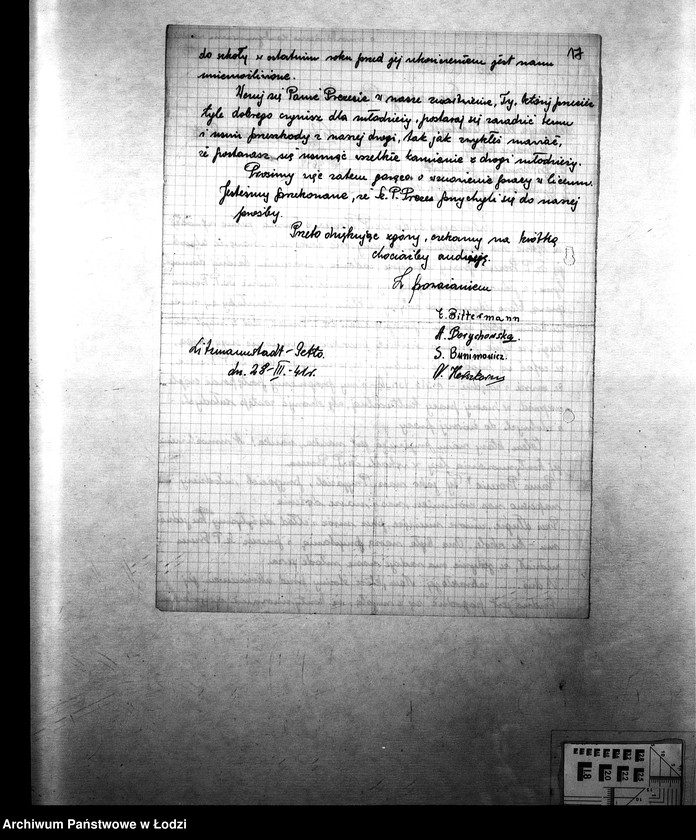 17
do szkoły w ostatnim roku przed jej ukończeniem jest nam
uniemożliwione.
Panie Prezesie w nasze Ty, który przecież
tyle dobrego czynisz dla młodzieży, postaraj się zaradzić temu
i usuń przeszkody z naszej drogi, tak jak zwykłeś mawiać,
że postarasz się usunąć wszelkie kamienie z drogi młodzieży.
Prosimy więc zatem gorąco o wznowienie pracy w liceum.
Jesteśmy przekonane, że Sz. P. Prezes przychyli się do naszej
prośby.
Przeto dziękując zgóry, czekamy na krótką
chociażby audiencję.
Z poważaniem
E. Bittermann
A. Borychowska.
S. Bunimowicz.
Litzmannstadt-Getto.
dn. 28-III.-41r.
18 20 22 25
Archiwum Państwowe w Łodzi